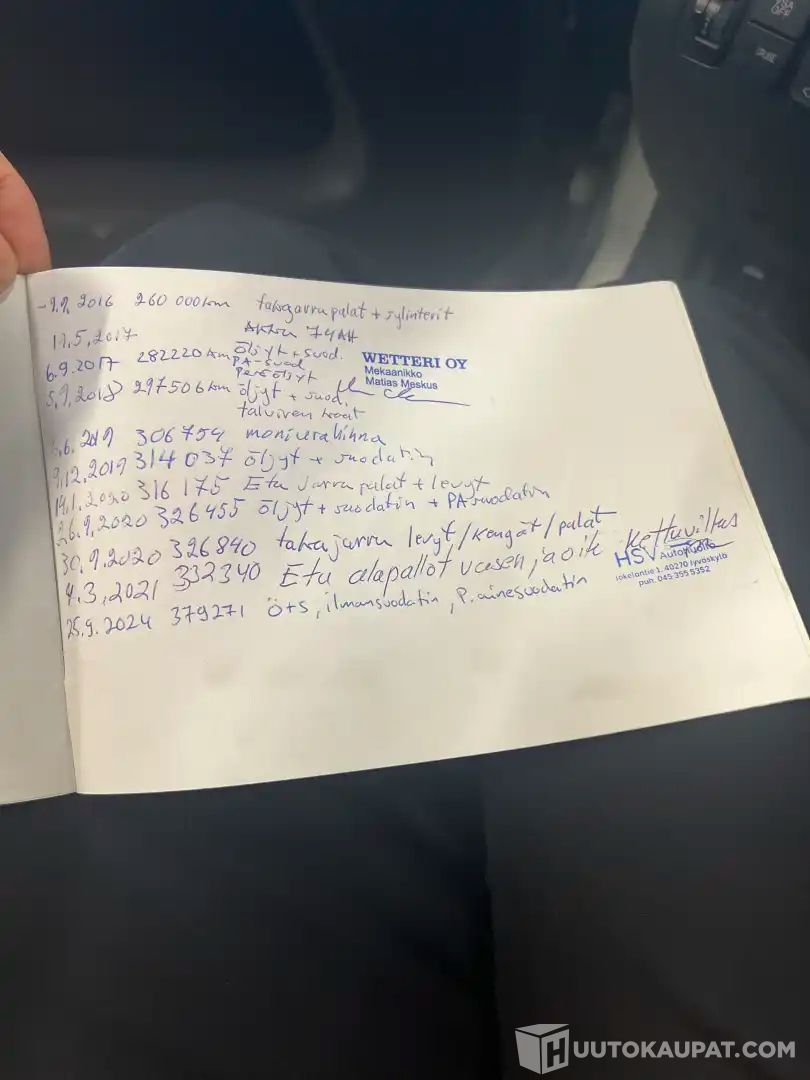 -9.9. 2016 260 000km takajarru palat + sylinterit
11.5.2017 Akku 74AH
6.9.2017 282220 km öljyt + suod.
PA-suod
Perä öljyt
WETTERI OY
Mekaanikko
Matias Meskus
5.9.2018 297506 km öljyt + suod.
talvirenkaat
6.2019 306754 moniurahihna
9.12.2019 314 037 öljyt + suodatin
14.1.2020 316 175 Etu jarru palat + levyt
26.9.2020 326455 öljyt + suodatin + PA suodatin
30.9.2020 326840 takajarru levyt/kengät/palat
4.3.2021 332340 Etu alapallot vasen ja oik
HSV Autohuolto
40270 Jyväskylä
puh. 045 355 5352
25.9.2024 379271 Ö+S, ilmansuodatin, P.ainesuodatin
PULL
OFF
HUUTOKAUPAT.COM